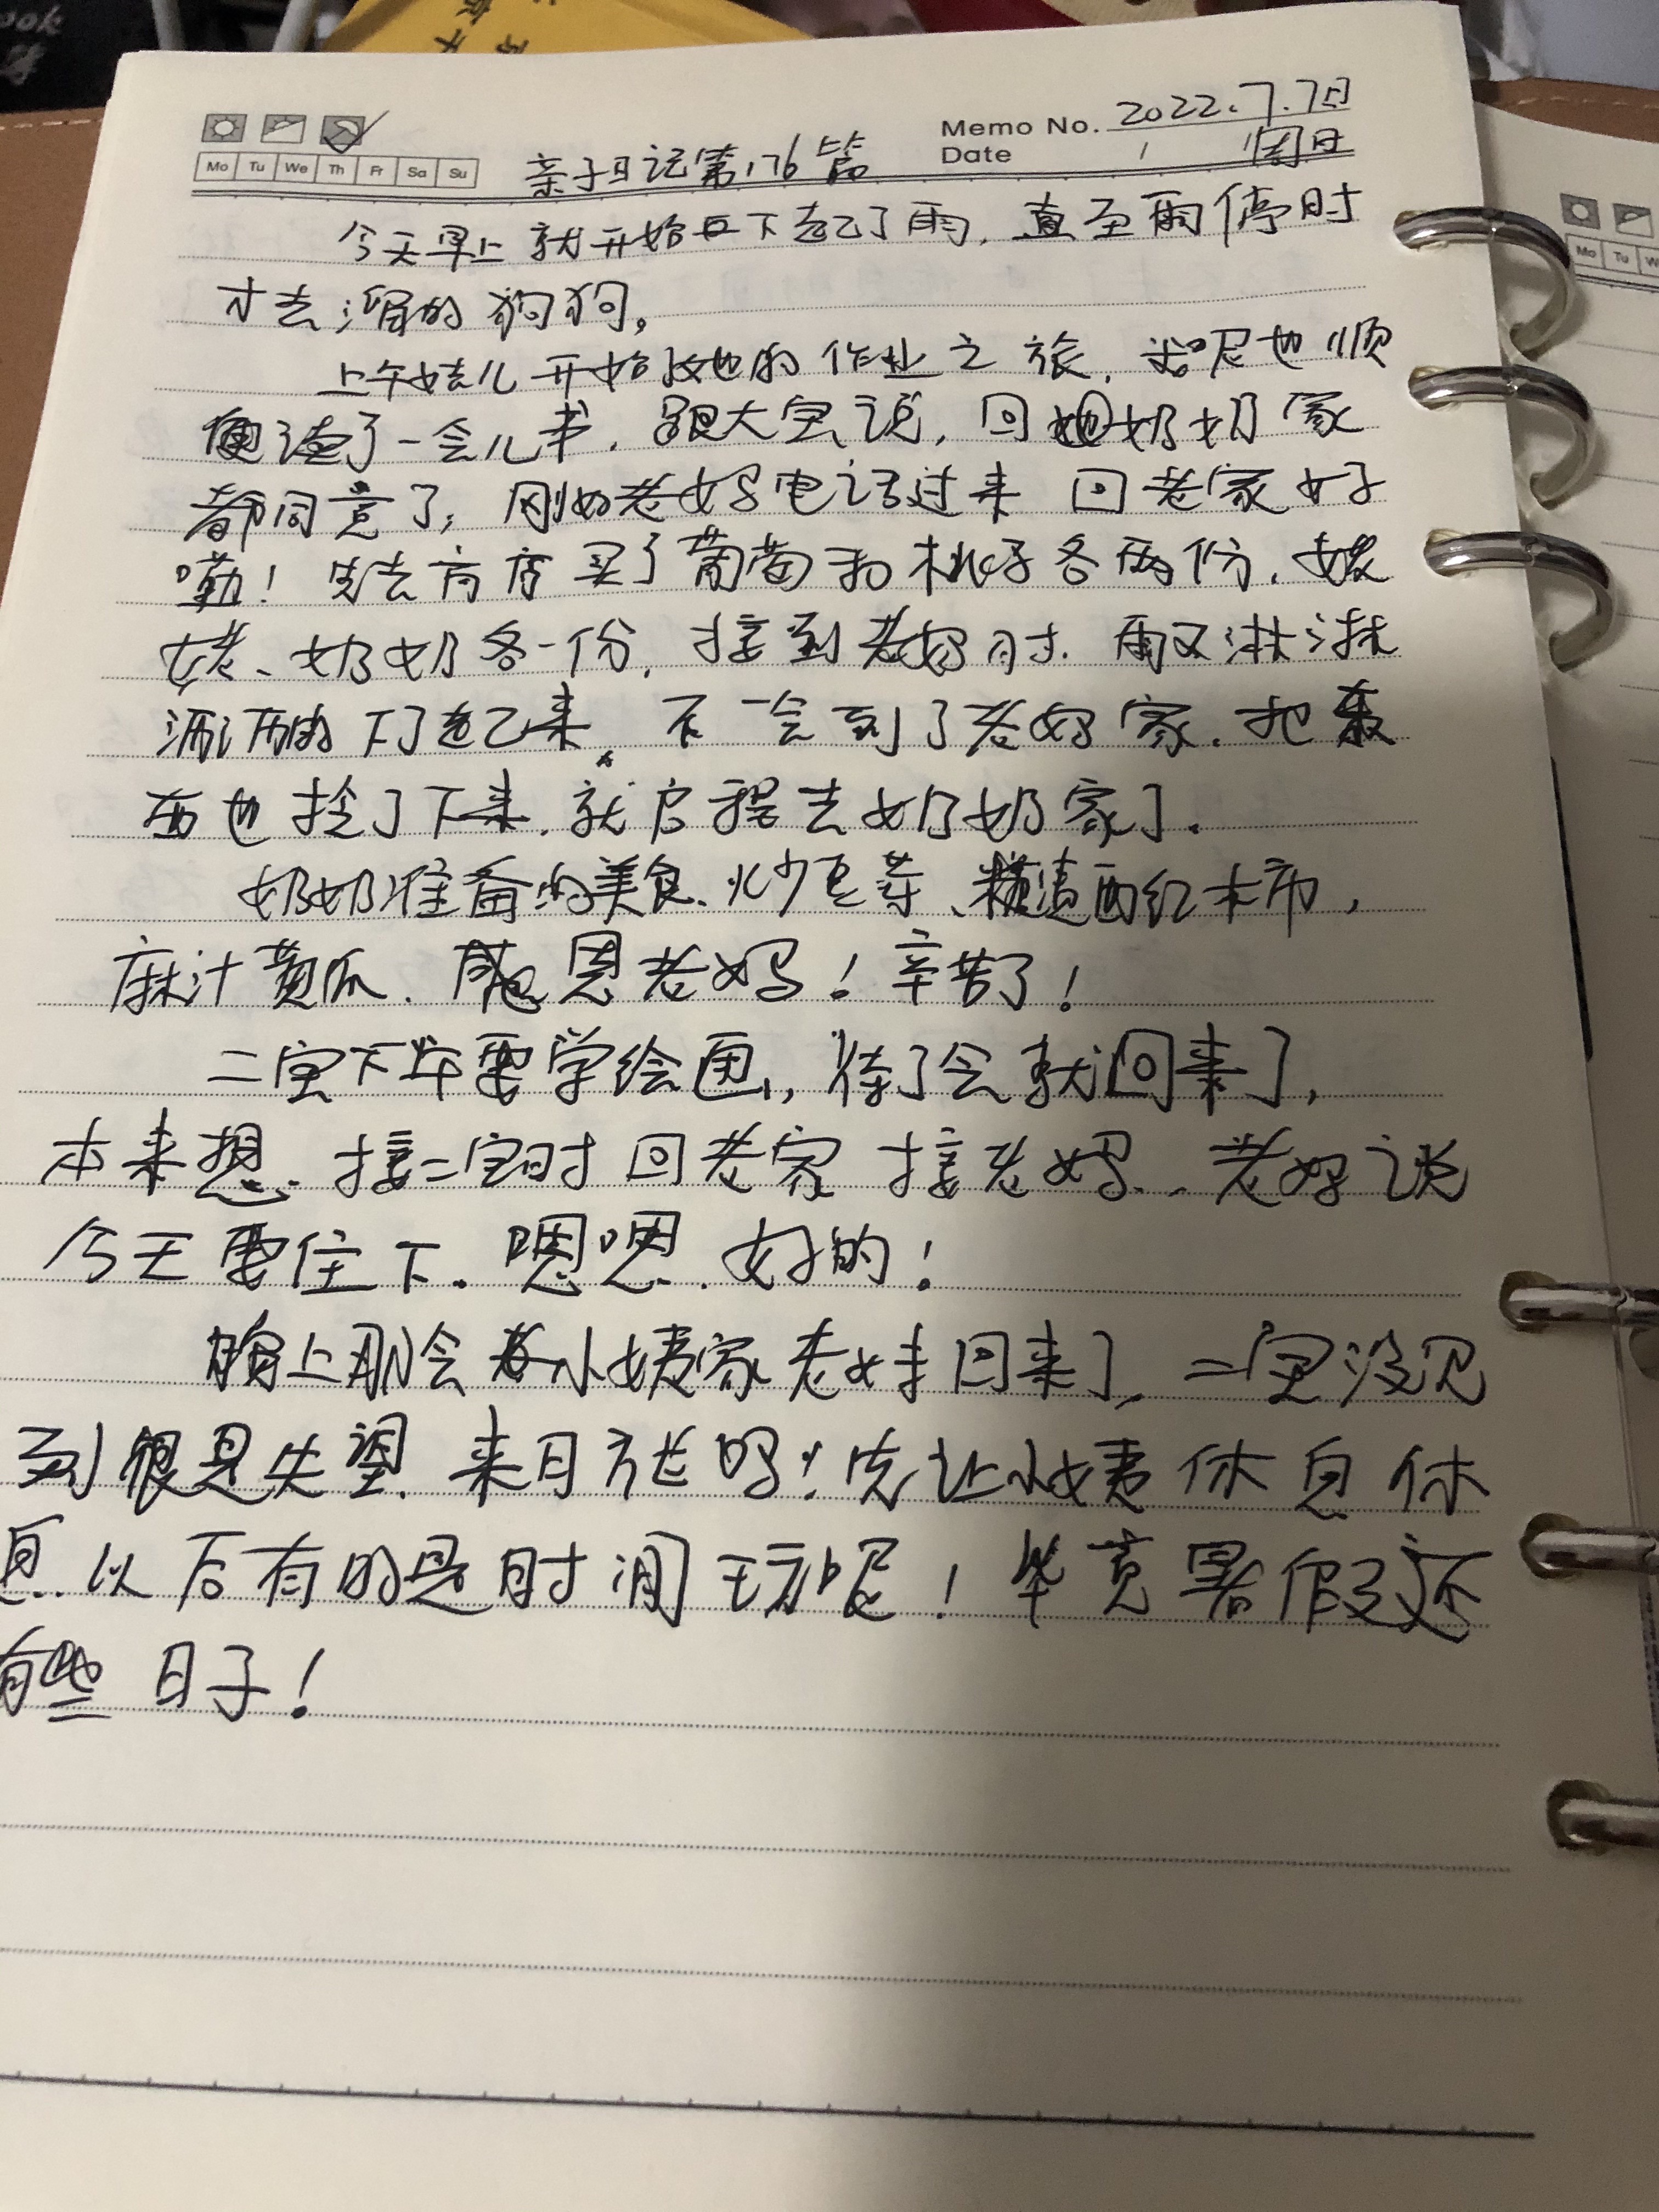 Memo No. 2022.7.7日
Mo Tu We Th Fr Sa Su
Date / 周日
亲子日记第176篇
今天早上就开始下起了雨，直至雨停时
才去溜的狗狗。
上午娃儿开始她的作业之旅，我呢也顺
便读了一会儿书，跟大宝说，回她奶奶家
都同意了，刚好老妈电话过来 回老家好
嘞！先去商店买了葡萄和桃子各两份，姥
姥、奶奶各一份，接到老妈时，雨又淋淋
洒洒的下了起来，不一会到了老妈家，把东
西也拎了下来，就启程去奶奶家了。
奶奶准备的美食、炒豆芽、糖渍西红柿，
麻汁黄瓜，感恩老妈！辛苦了！
二宝下午要学绘画，待了会就回来了，
本来想，接二宝时回老家接老妈，老妈说
今天要住下。嗯嗯，好的！
晚上那会老小姨家老妹回来了，二宝没见
到很是失望，来日方长吗！先让小姨休息休
息，以后有的是时间玩呢！毕竟暑假还
有些日子！
Mo Tu W